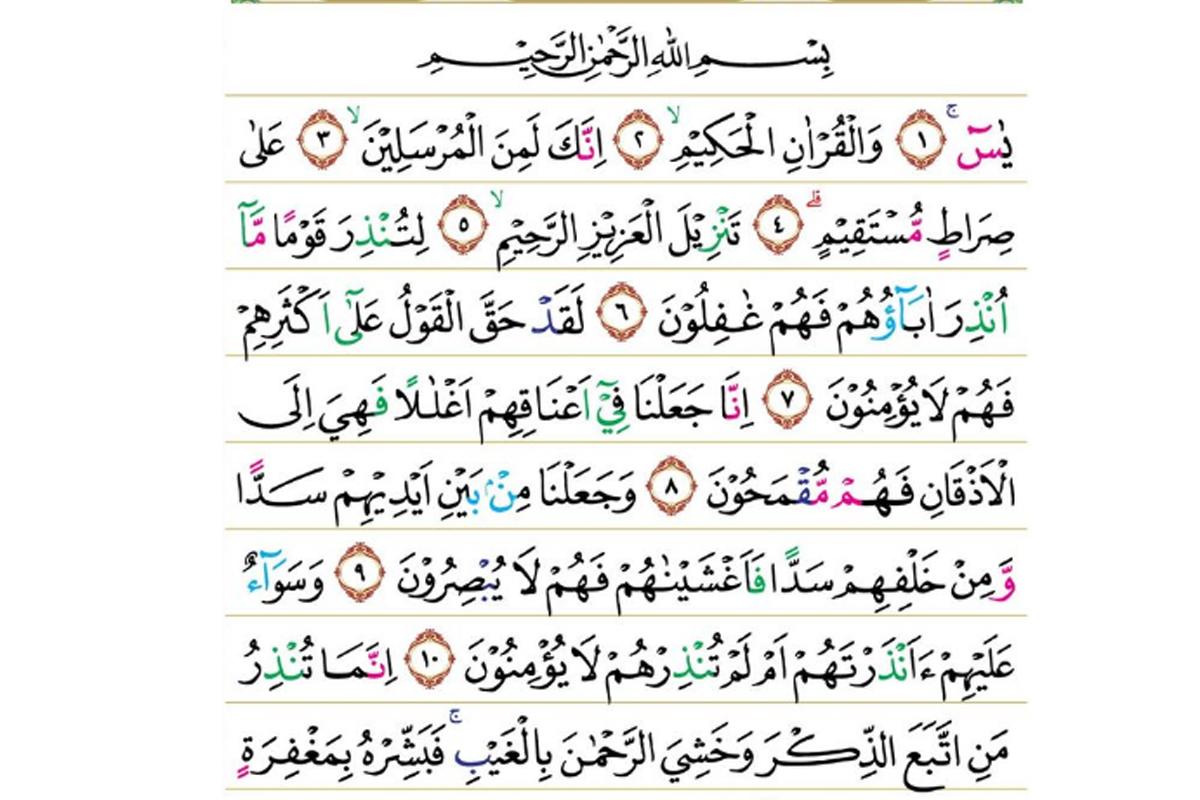 بِسْمِ اللّٰهِ الرَّحْمٰنِ الرَّحِيْمِ
يٰسۤ ۚ ١ وَالْقُرْاٰنِ الْحَكِيْمِۙ ٢ اِنَّكَ لَمِنَ الْمُرْسَلِيْنَۙ ٣ عَلٰى
صِرَاطٍ مُّسْتَقِيْمٍۗ ٤ تَنْزِيْلَ الْعَزِيْزِ الرَّحِيْمِۙ ٥ لِتُنْذِرَ قَوْمًا مَّآ
اُنْذِرَ اٰبَاۤؤُهُمْ فَهُمْ غٰفِلُوْنَ ٦ لَقَدْ حَقَّ الْقَوْلُ عَلٰٓى اَكْثَرِهِمْ
فَهُمْ لَا يُؤْمِنُوْنَ ٧ اِنَّا جَعَلْنَا فِيْٓ اَعْنَاقِهِمْ اَغْلٰلًا فَهِيَ اِلَى
الْاَذْقَانِ فَهُمْ مُّقْمَحُوْنَ ٨ وَجَعَلْنَا مِنْۢ بَيْنِ اَيْدِيْهِمْ سَدًّا
وَّمِنْ خَلْفِهِمْ سَدًّا فَاَغْشَيْنٰهُمْ فَهُمْ لَا يُبْصِرُوْنَ ٩ وَسَوَاۤءٌ
عَلَيْهِمْ ءَاَنْذَرْتَهُمْ اَمْ لَمْ تُنْذِرْهُمْ لَا يُؤْمِنُوْنَ ١٠ اِنَّمَا تُنْذِرُ
مَنِ اتَّبَعَ الذِّكْرَ وَخَشِيَ الرَّحْمٰنَ بِالْغَيْبِۚ فَبَشِّرْهُ بِمَغْفِرَةٍ